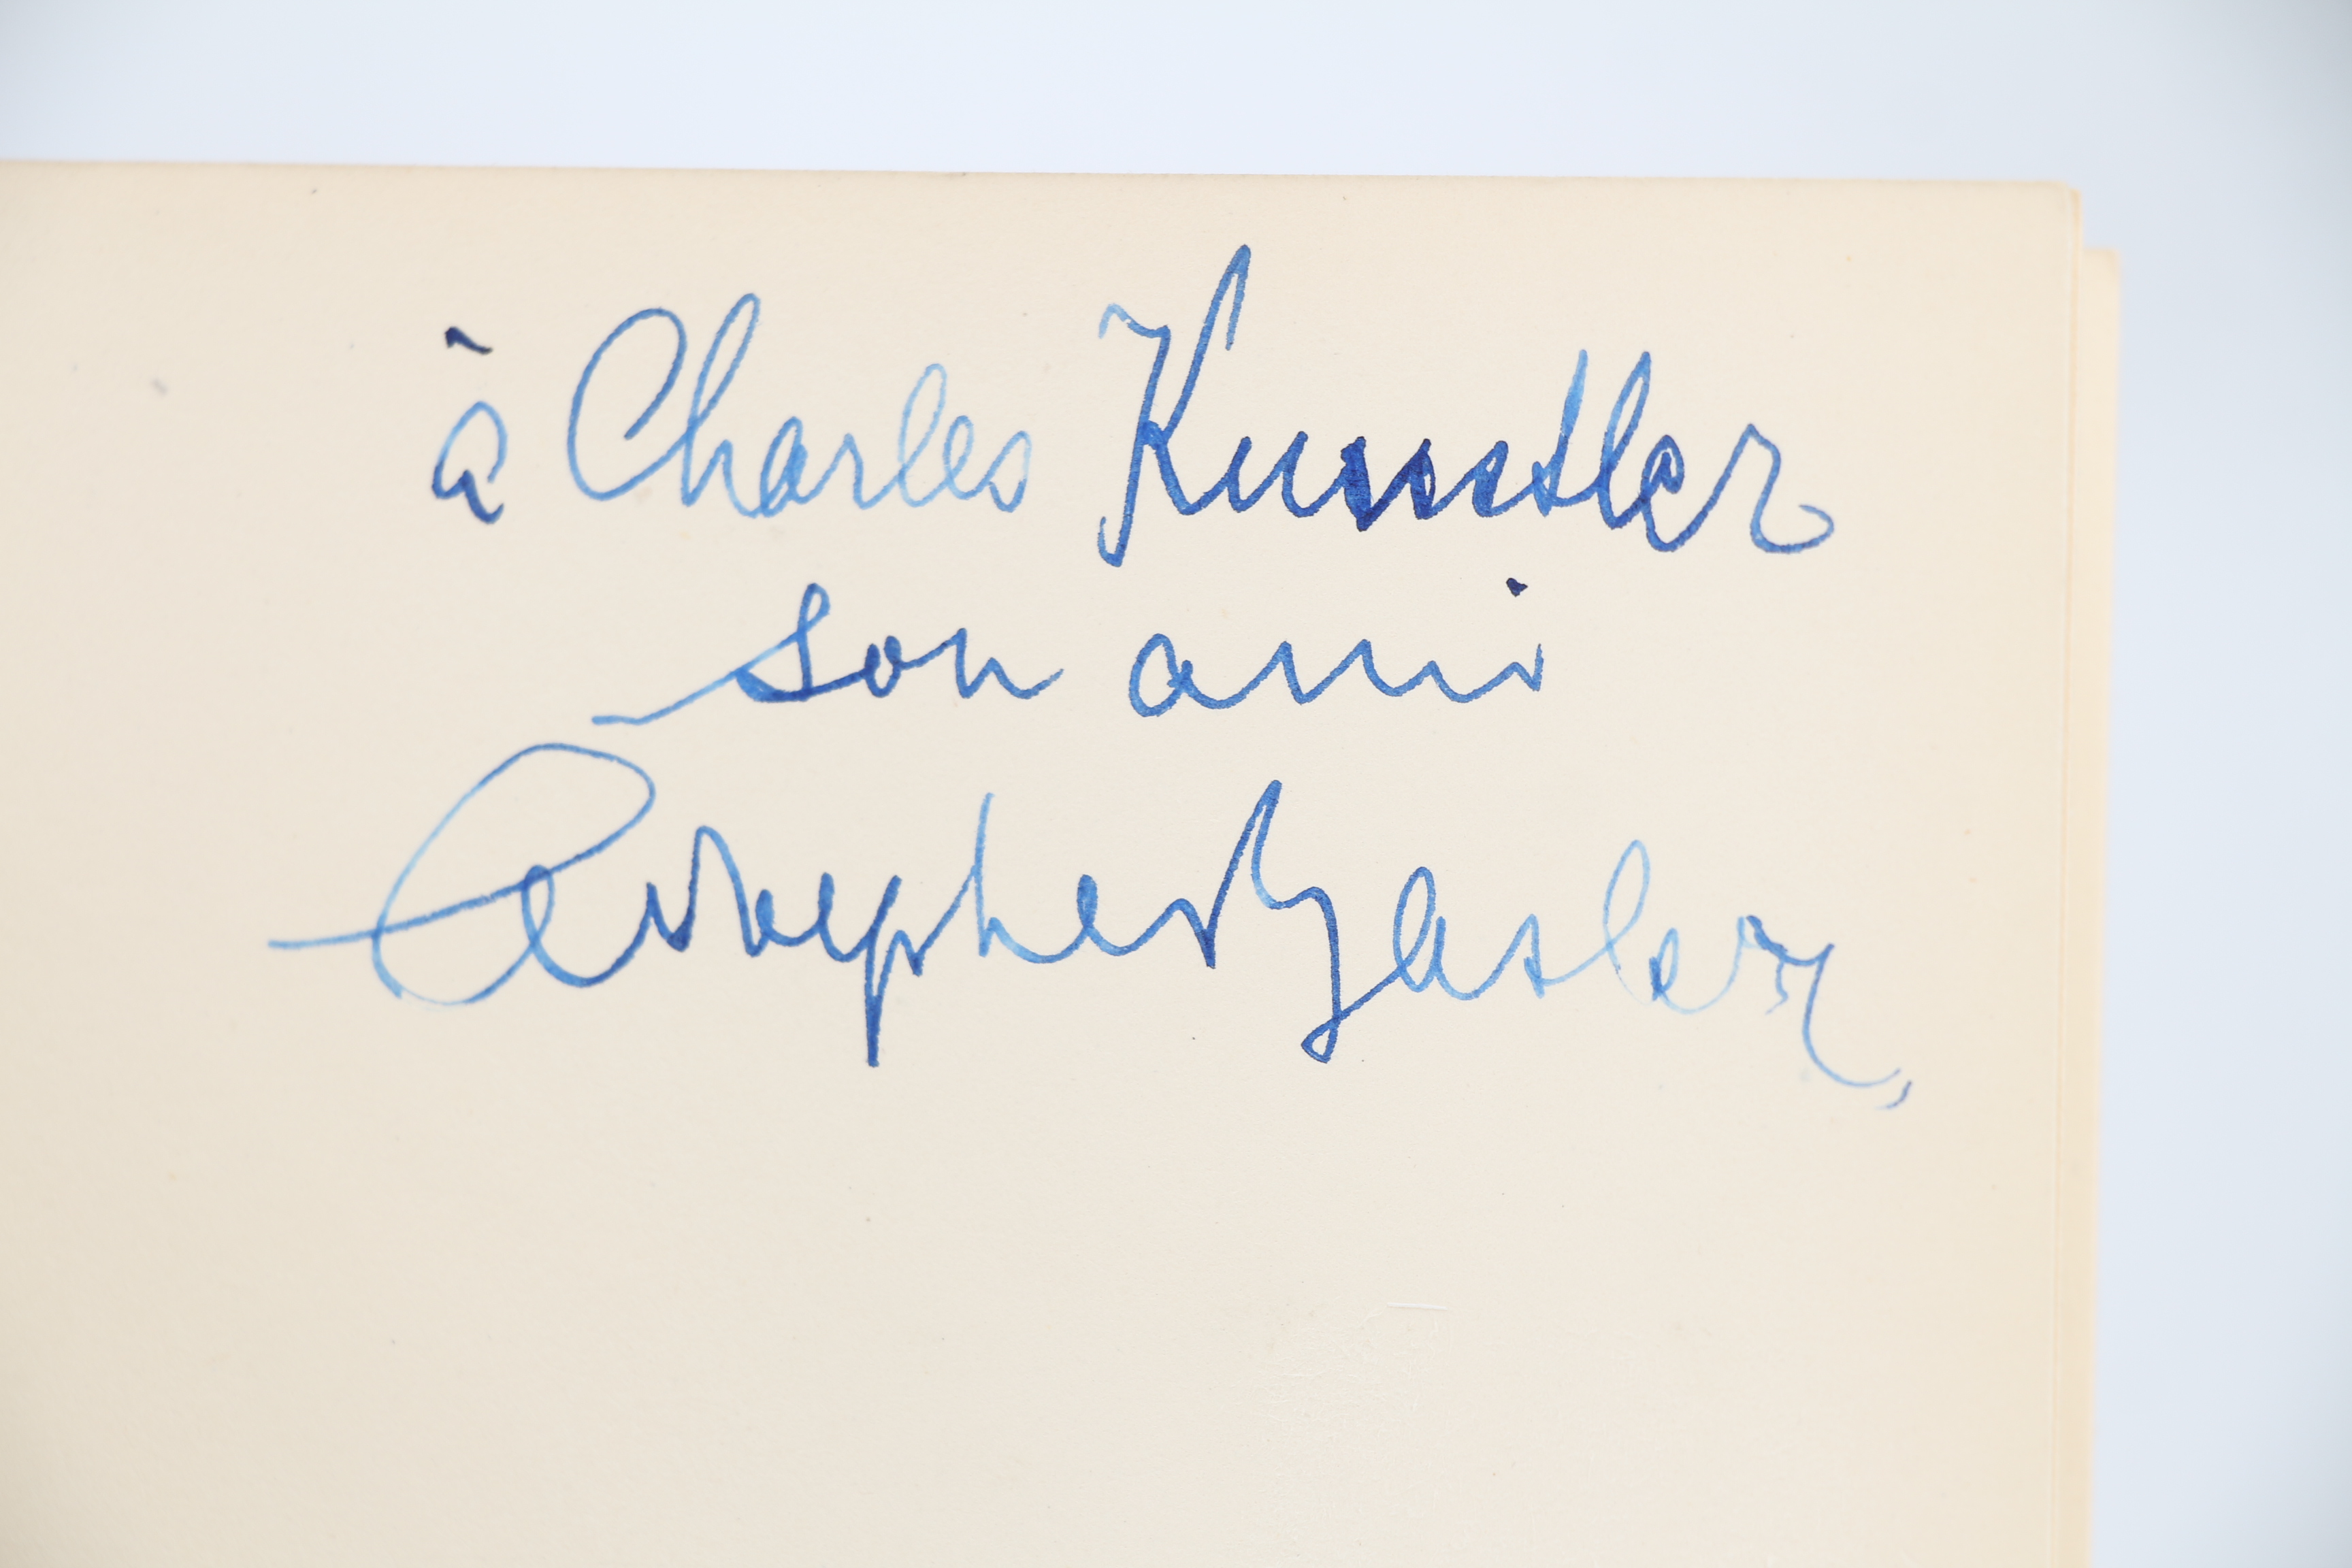 à Charles Kunstler
son ami
Adolphe Basler